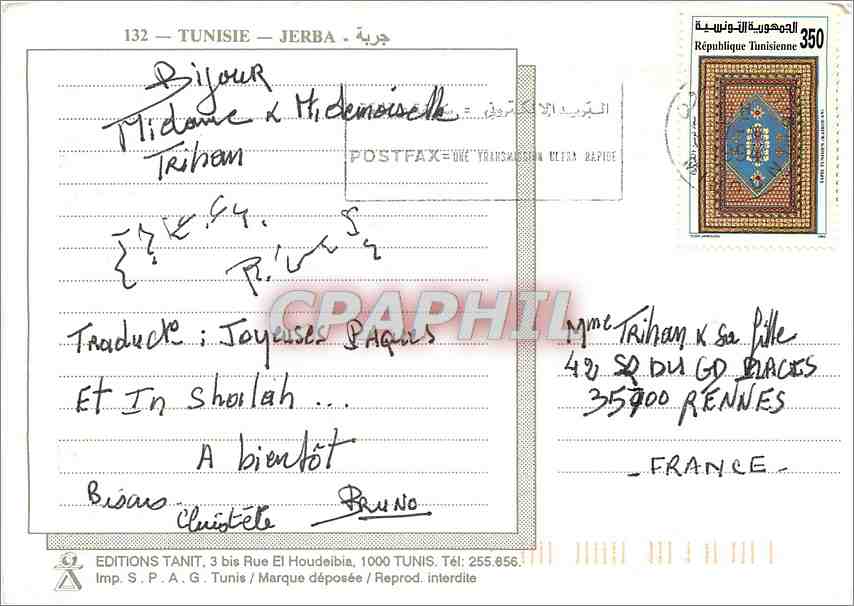 132 — TUNISIE — JERBA - جربة
الجمهورية التونسية
République Tunisienne 350
Bijour
Midame & Midemoiselle
Trihan
البريد الالكتروني =
POSTFAX = UNE TRANSMISSION ULTRA RAPIDE
CPAPHIL
Traducto : Joyeuses Paques
Et In Shallah ...
A bientôt
Bisous
Christèle Bruno
Mme Trihan & sa fille
42 SQ DU GD PLACIS
35700 RENNES
- FRANCE -
EDITIONS TANIT, 3 bis Rue El Houdeibia, 1000 TUNIS. Tél: 255.656.
Imp. S . P . A . G . Tunis / Marque déposée / Reprod. interdite